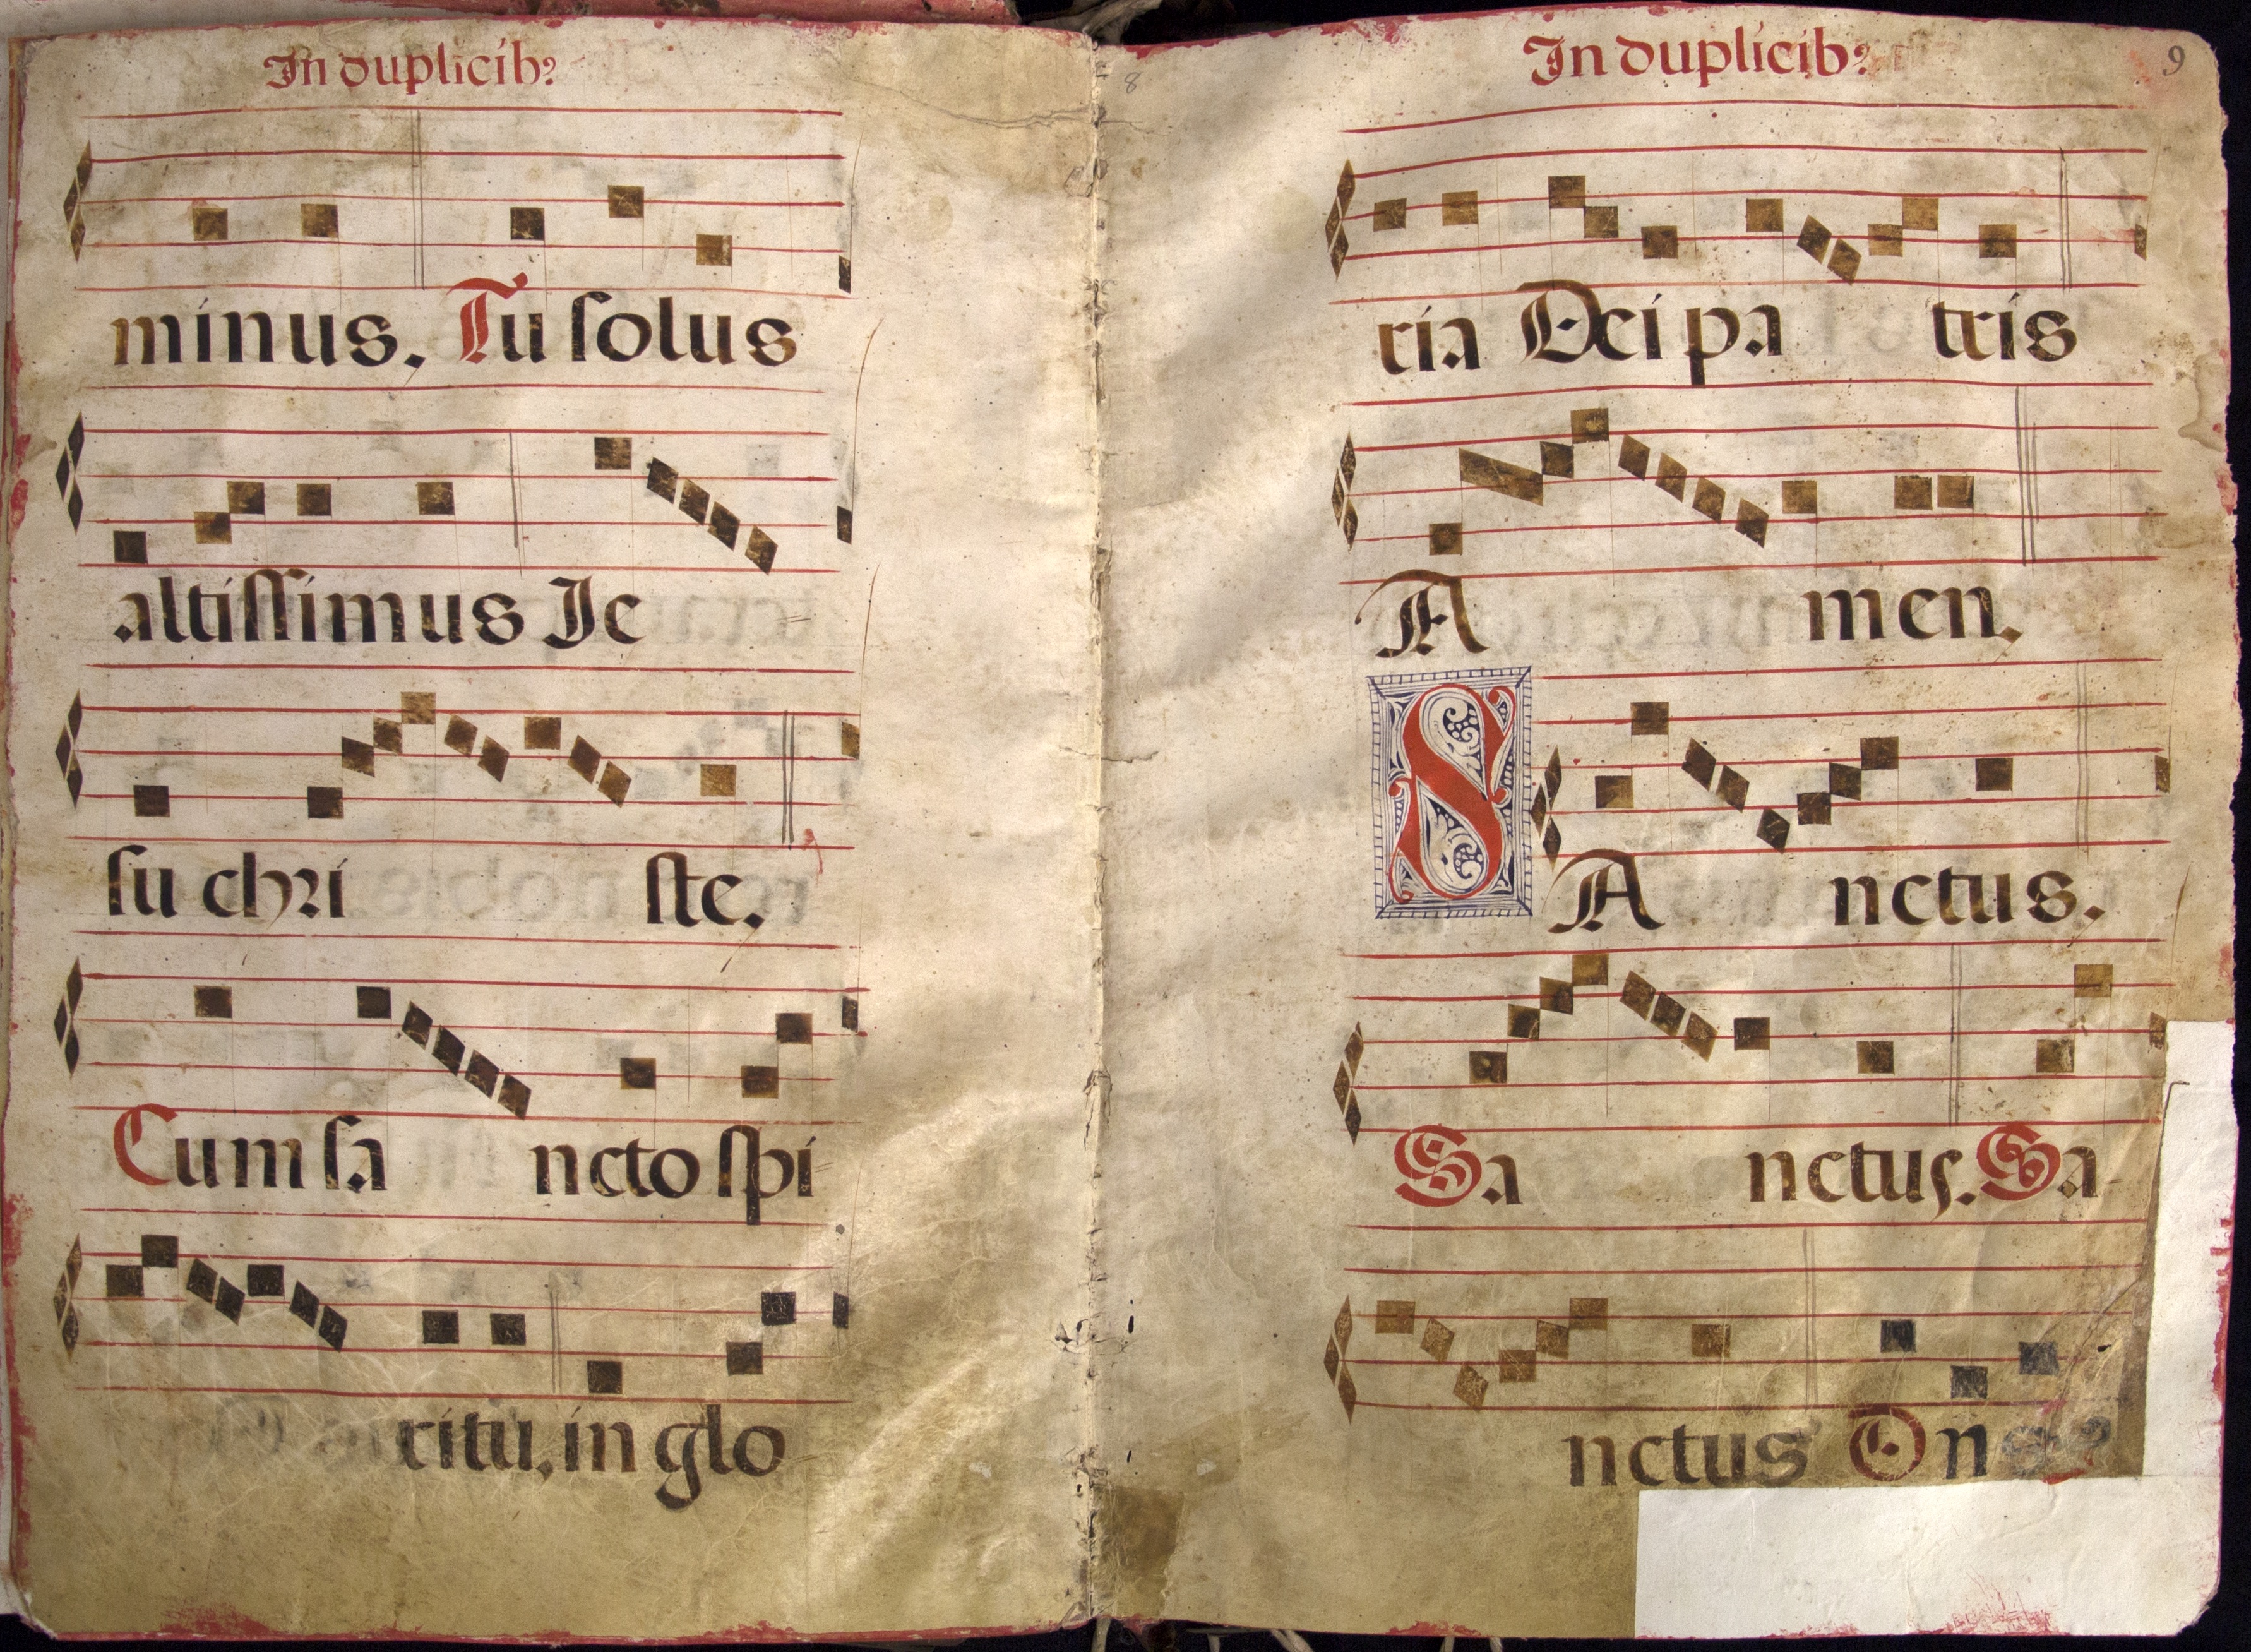 In duplicibꝰ
minus. Tu solus
altissimus Je
su chri ste.
Cum sa ncto spi
ritu, in glo
8
In duplicibꝰ
9
ria Dei pa tris
A men.
SA nctus.
Sa nctus. Sa-
nctus Dns